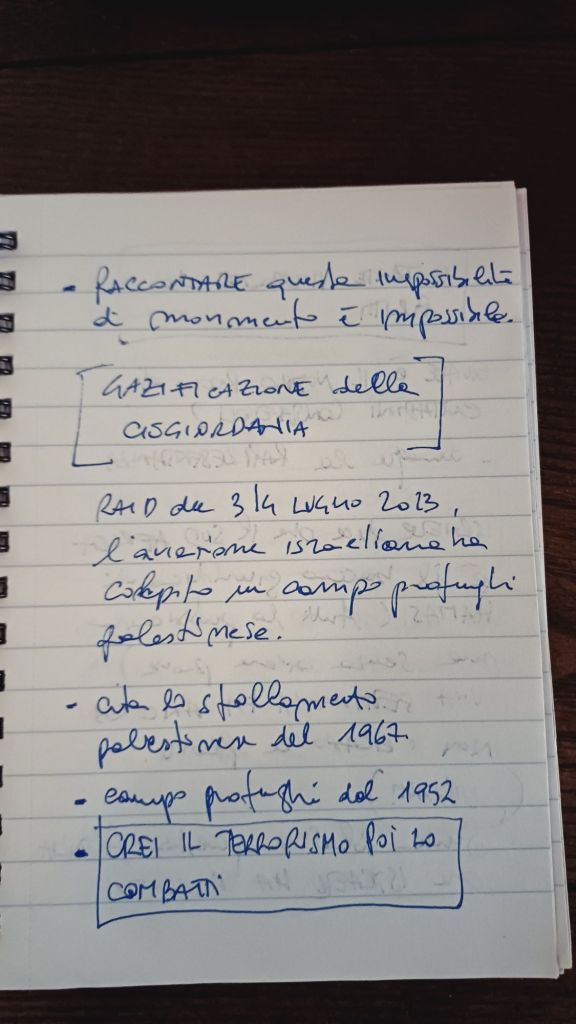 - RACCONTARE questa impossibilità
di movimento è impossibile.
GAZIFICAZIONE della
CISGIORDANIA
RAID del 3/4 LUGLIO 2023,
l'aviazione israeliana ha
colpito un campo profughi
palestinese.
- cita lo sfollamento
palestinese del 1967
- campo profughi dal 1952
- CREI IL TERRORISMO POI LO
COMBATTI